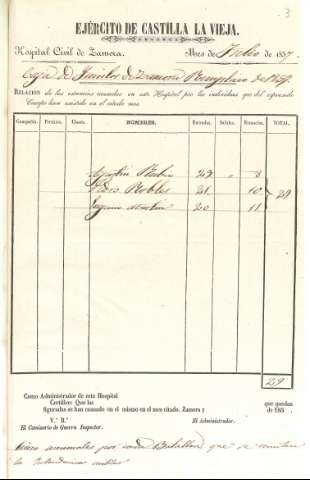 3
EJÉRCITO DE CASTILLA LA VIEJA.
Hospital Civil de Zamora. Mes de Julio de 1837.
Caja de Quintos de Zamora Reemplazo de
RELACION de las estancias causadas en este Hospital por los individuos que del espresado
Cuerpo han existido en el citado mes.
Compañia. Partido. Clases. NOMBRES. Entradas. Salidas. Estancias. TOTAL.
Agustin 29 " 8
Robles 21 10 29
Eugenio Martin 20 11
29
Como Administrador de este Hospital
Certifico: Que las que quedan
figuradas se han causado en el mismo en el mes citado. Zamora y de 183
V.º B.º
El Comisario de Guerra Inspector. El Administrador.
por cada Batallon que se
la Intendencia militar